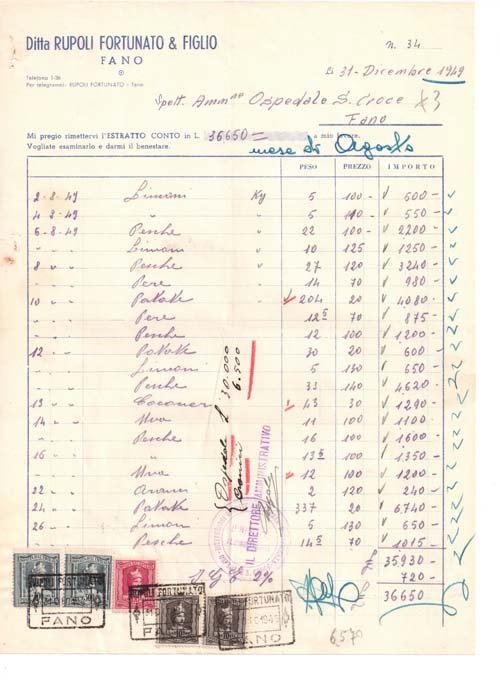 Ditta RUPOLI FORTUNATO & FIGLIO
FANO
Telefono 1-36
Per telegrammi: RUPOLI FORTUNATO - Fano
N. 34
Li 31-Dicembre 1949
Spett. Amm.ne Ospedale S. Croce
Fano
Mi pregio rimettervi l'ESTRATTO CONTO in L. 36650= a mio favore.
Vogliate esaminarlo e darmi il benestare.
mese di Agosto
PESO PREZZO IMPORTO
2-8-49 Limoni Kg 5 100 - 500 -
4-8-49 " " 5 110 - 550 -
6-8-49 Pesche " 22 100 - 2200 -
" " Limoni " 10 125 1250 -
8 " Pesche " 27 120 3240 -
" " Pere " 14 70 980 -
10 " Patate 204 20 4080 -
" " Pere 12 5 70 875 -
" " Pesche 12 100 1200 -
12 " Patate 30 20 600 -
" " Limoni 5 130 650 -
" " Pesche 33 140 4620 -
13 " 43 30 1290 -
14 " Uva 11 100 1100 -
" " Pesche 16 100 1600 -
16 " " 13 5 100 1350 -
" " Uva 12 100 1200 -
22 " 2 120 240 -
24 " Patate 337 20 6740 -
26 " Limoni 5 130 650 -
" " Pesche 14 5 70 1015 -
35930 -
2% 720 -
36650
Ospedale L 30.000
6.500
IL DIRETTORE AMMINISTRATIVO
RUPOLI FORTUNATO
FANO
RUPOLI FORTUNATO
FANO
RUPOLI FORTUNATO
FANO
6570